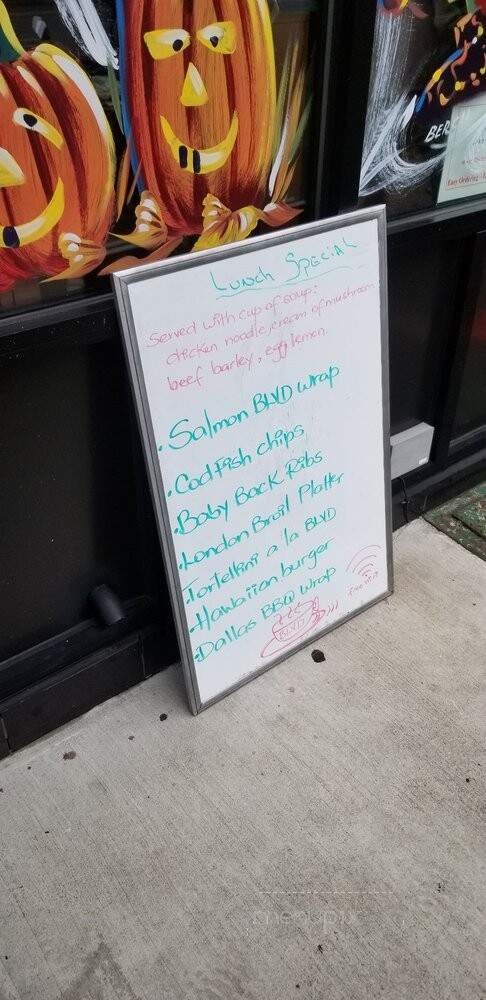 Lunch Special
Served with cup of soup:
chicken noodle, cream of mushroom
beef barley, egg lemon.
. Salmon BLVD wrap
. Cod Fish chips
. Baby Back Ribs
. London Broil Platter
. Tortellini a 'la BLVD
. Hawaiian burger
. Dallas BBQ Wrap
BLVD
Free Wifi
BER